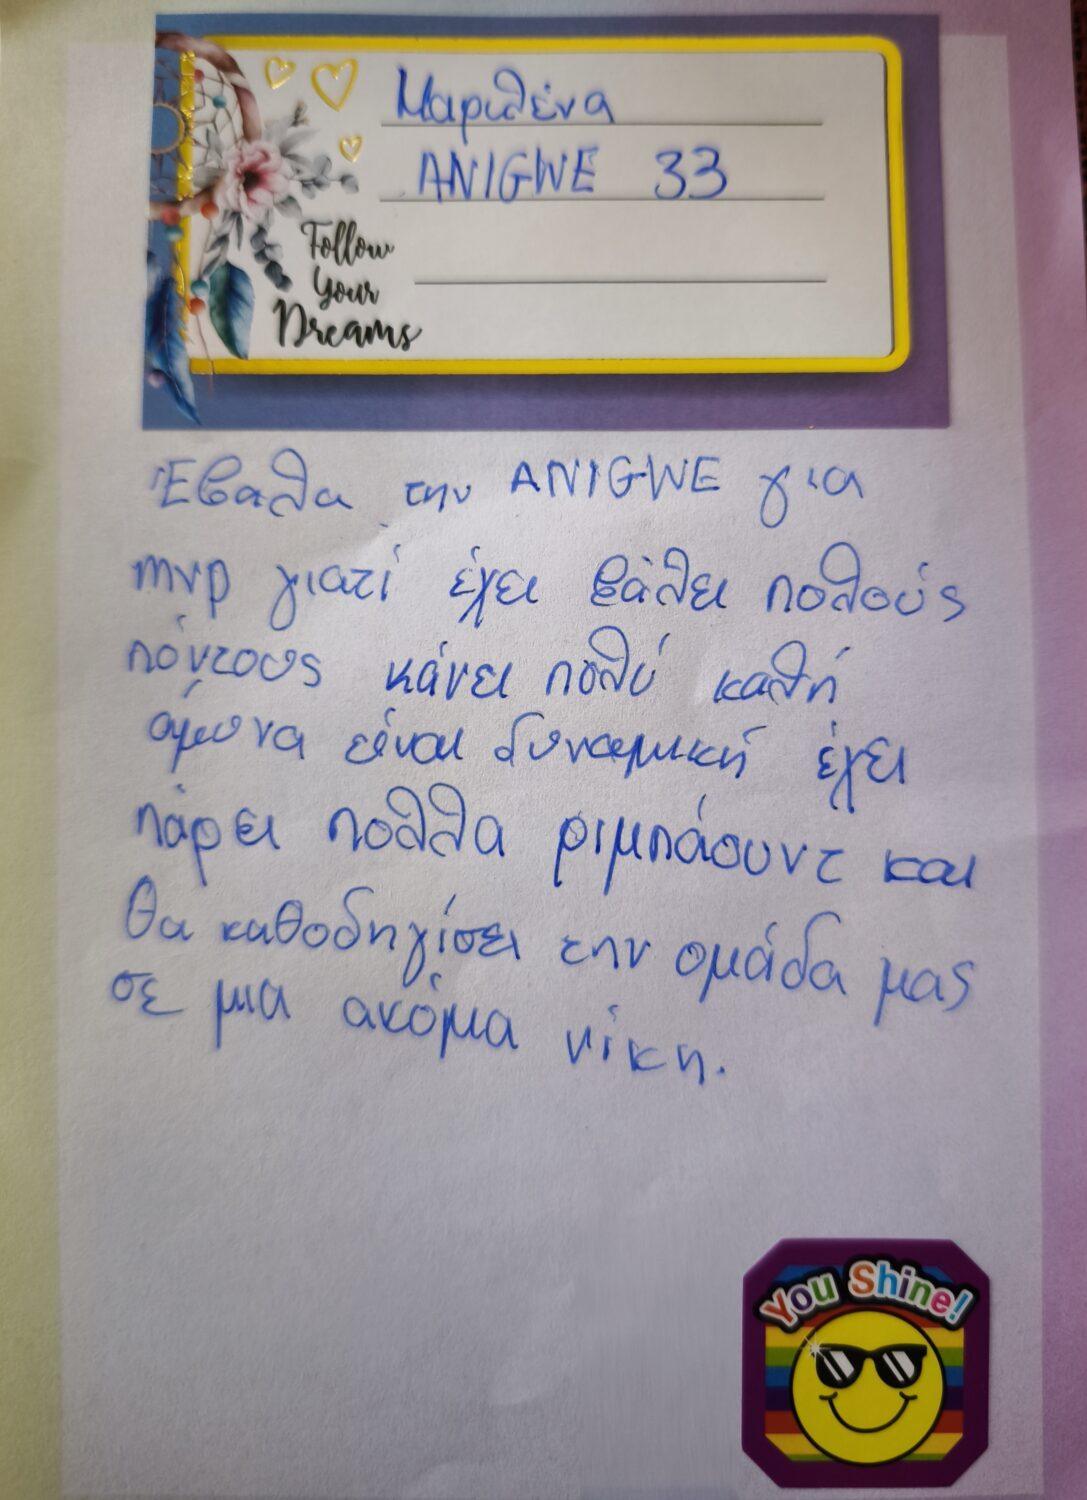 Μαριλένα
ANIGWE 33
Follow
Your
Dreams
Έβαλα την ANIGWE για
mvp γιατί έχει βάλει πολούς
πόντους κάνει πολύ καλή
άμυνα είναι δυναμική έχει
πάρει πολλα ριμπάουντ και
θα καθοδηγίσει την ομάδα μας
σε μια ακόμα νίκη.
You Shine!